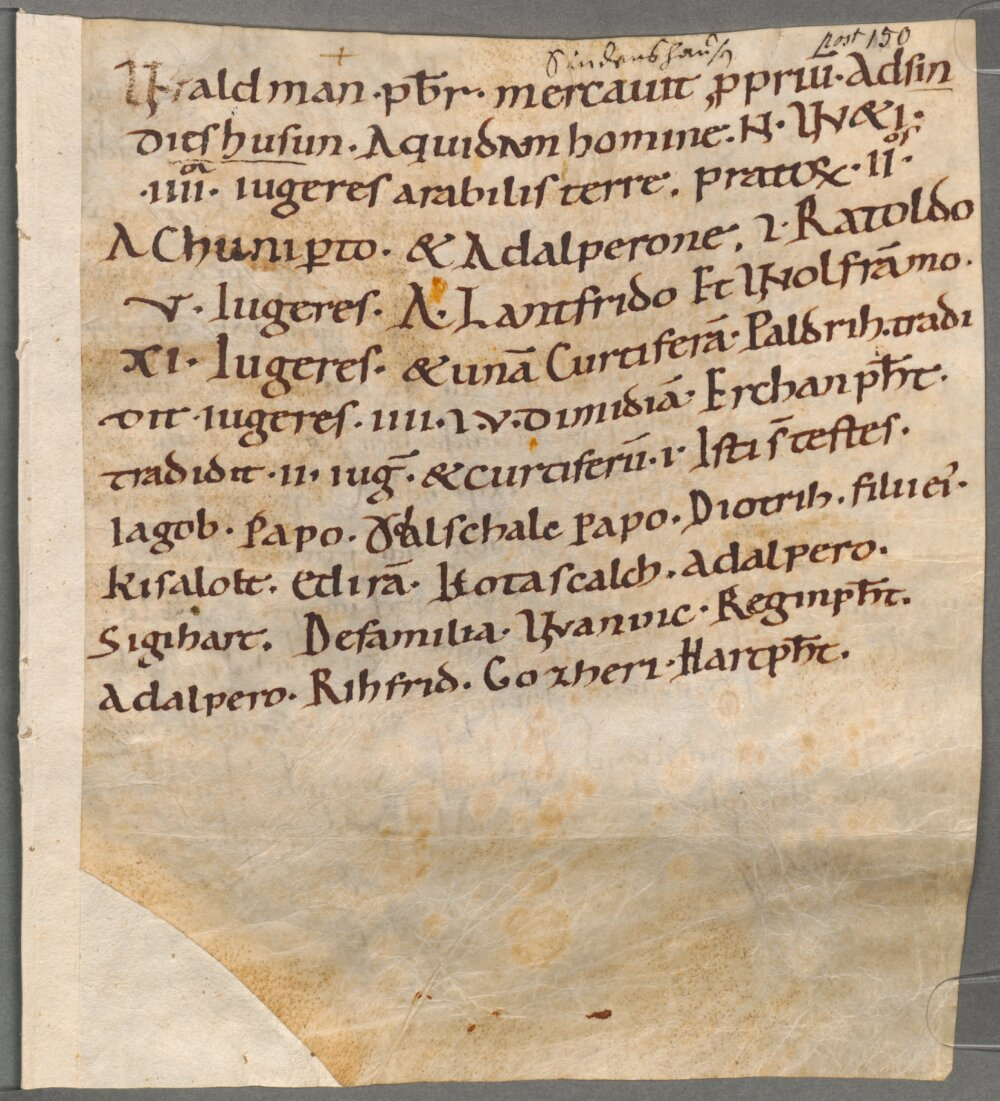 Sindenshausen post 150
VValdman · pb̄r · mercauit ꝓpriū · Adsin
dieshusun · Aquidam homine · N · VV&I ·
· IIII · iugeres arabilis terre . pratoꝝ · II ·
A Chuniꝑto · & Adalperone . I · Ratoldo
V · Iugeres · A · Lantfrido Et VVolfrāmo .
XI · Iugeres · & unā Curtiferā · Paldrih · tradi
dit · iugeres · IIII · I · V · Dimidiā · Erchanpħt ·
tradidit · II · iuḡ · & curtiferū · I · Isti s̄ testes ·
Iagob · Papo · Adalschalc Papo · Diotrih · filii ei' ·
Kisalolt · Etlirā · Kotascalch · Adalpero .
Sigihart . De familia · VVaninc · Reginpħt .
Adalpero · Rihfrid . Gozheri · Hartpħt .